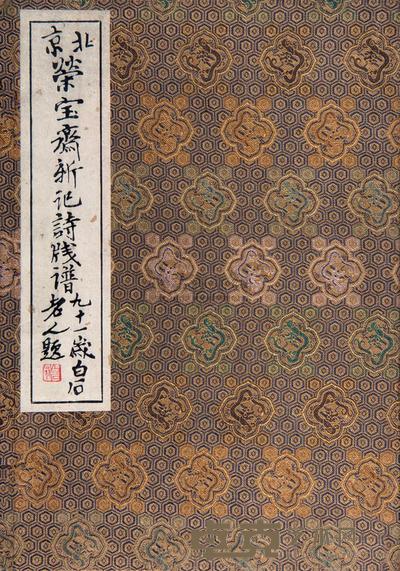 北京榮宝齋新記詩牋譜
九十一歲白石
老人題